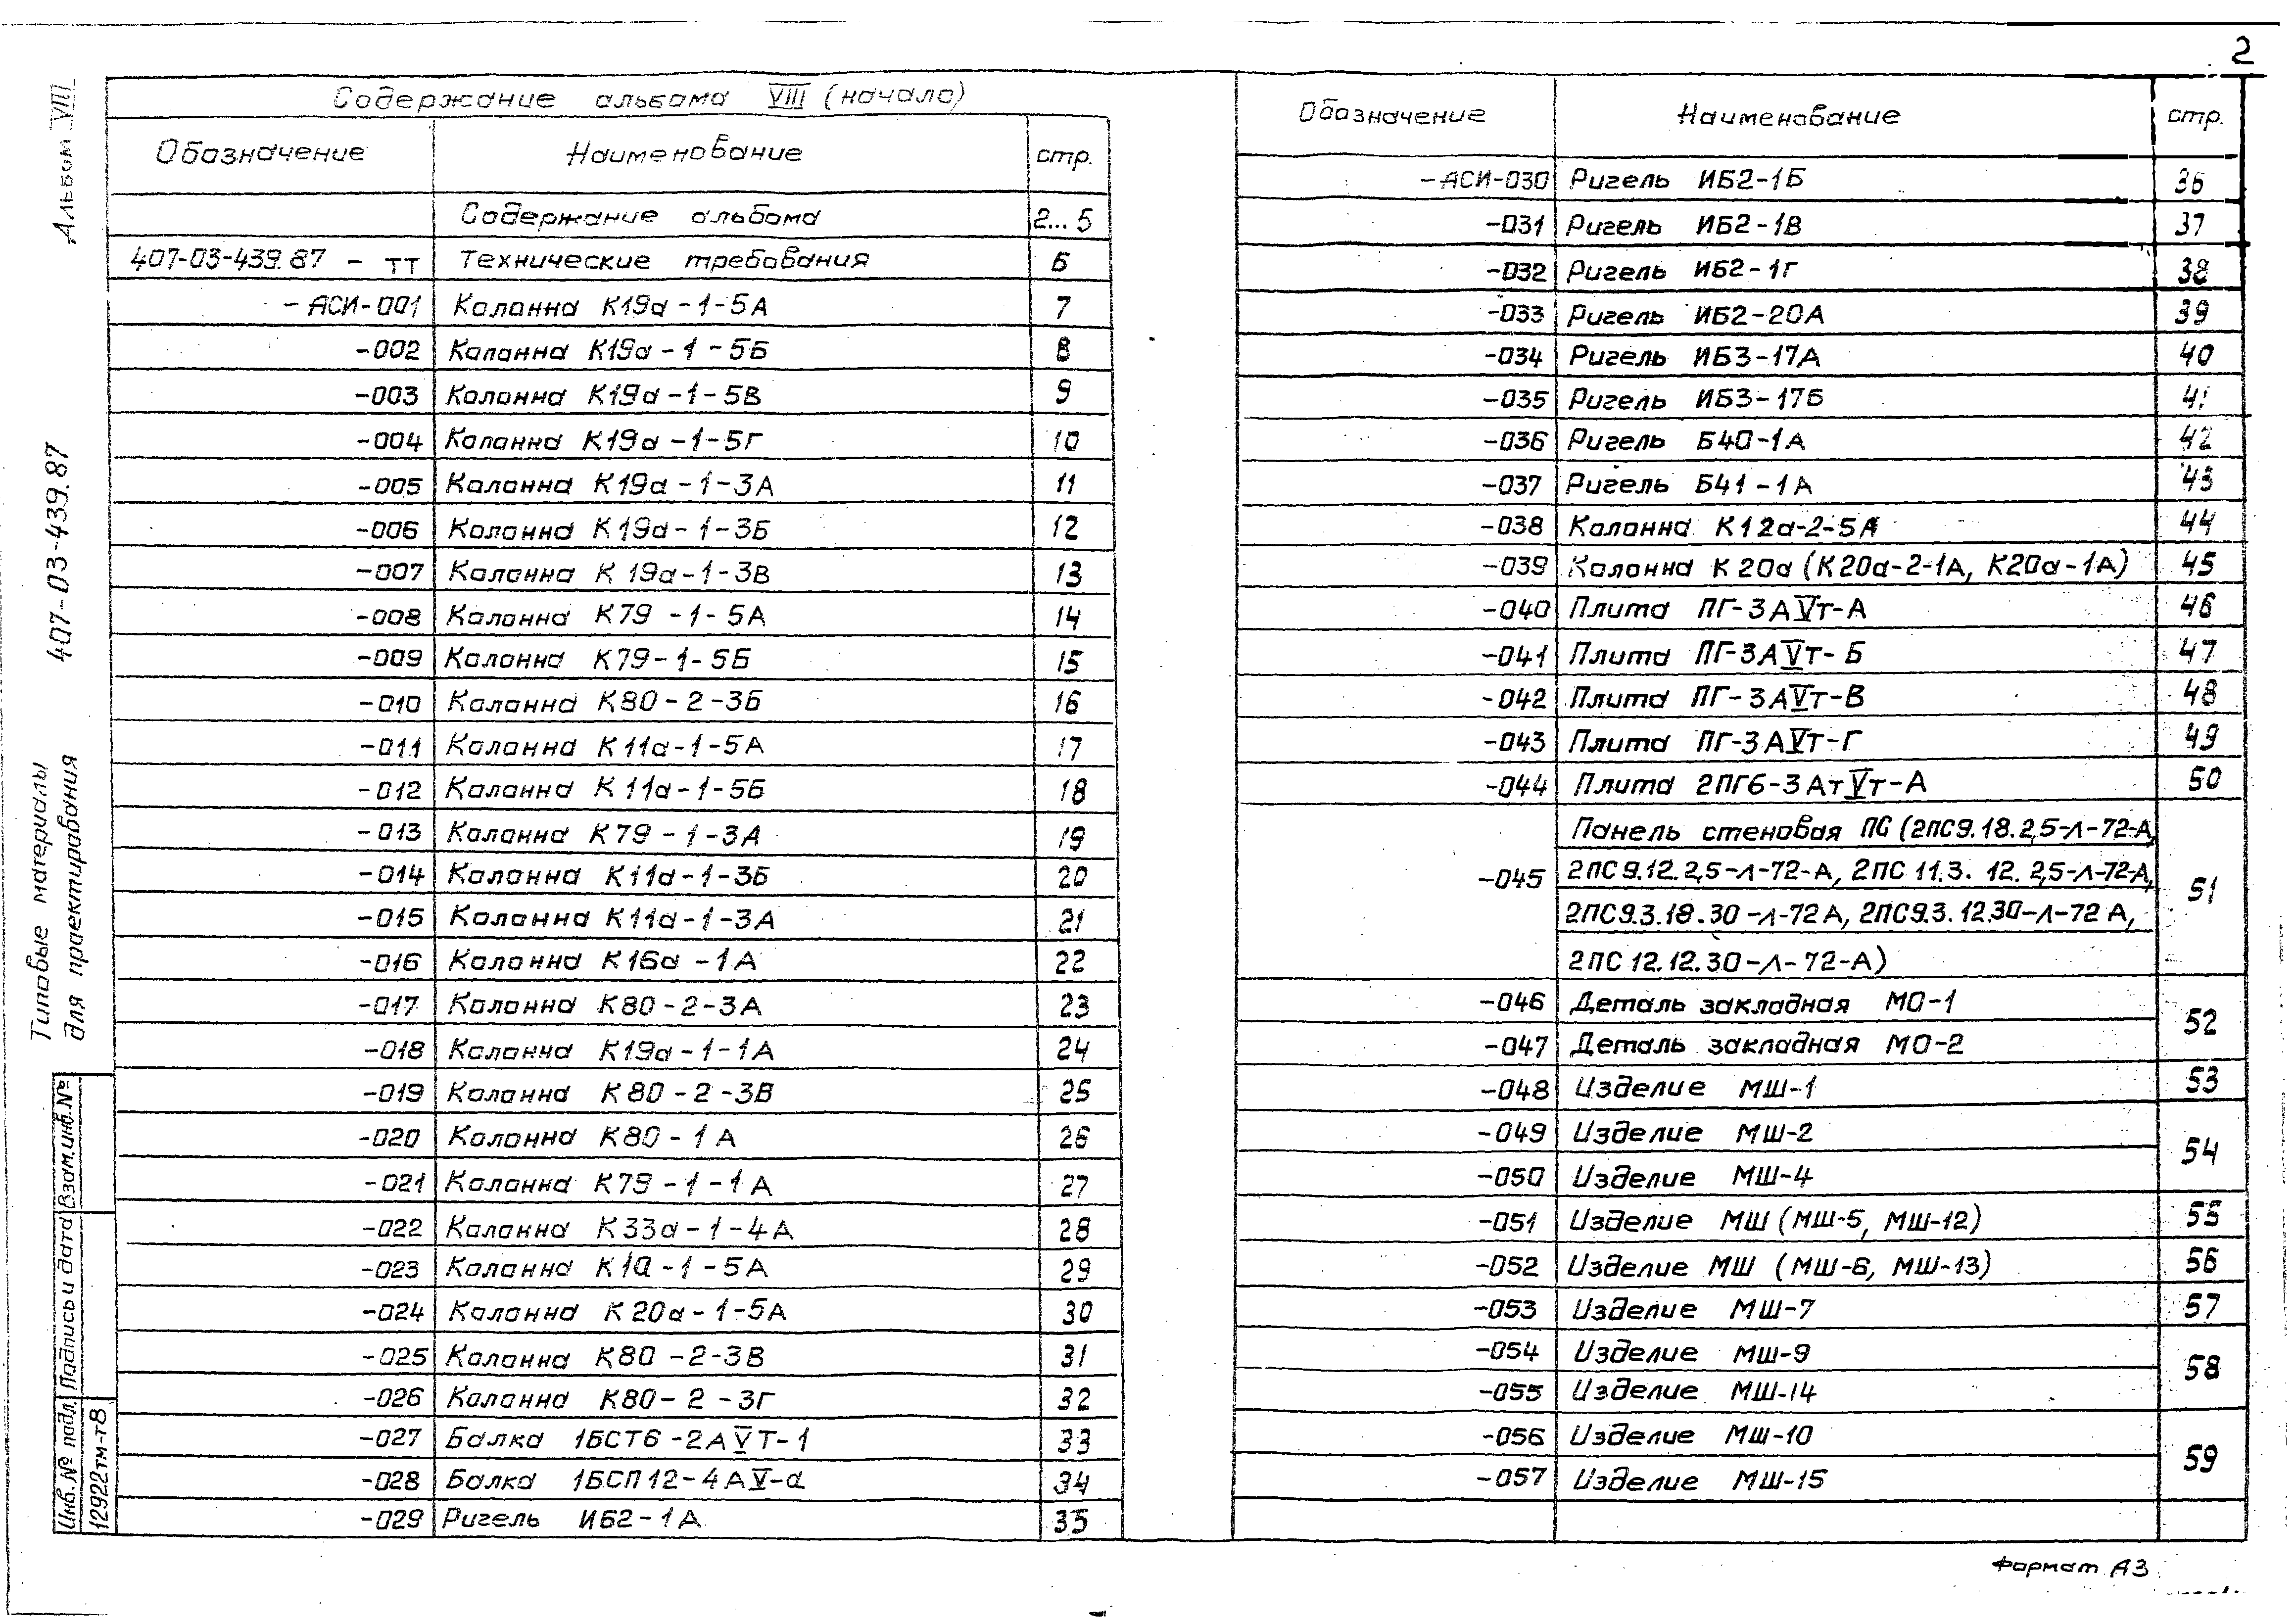 2
Альбом VIII
407-03-439.87
Типовые материалы
для проектирования
Содержание альбома VIII (начало)
Обозначение Наименование стр.
Содержание альбома 2...5
407-03-439.87 - ТТ Технические требования 6
-АСИ-001 Колонна К19а-1-5А 7
-002 Колонна К19а-1-5Б 8
-003 Колонна К19а-1-5В 9
-004 Колонна К19а-1-5Г 10
-005 Колонна К19а-1-3А 11
-006 Колонна К19а-1-3Б 12
-007 Колонна К19а-1-3В 13
-008 Колонна К79-1-5А 14
-009 Колонна К79-1-5Б 15
-010 Колонна К80-2-3Б 16
-011 Колонна К11а-1-5А 17
-012 Колонна К11а-1-5Б 18
-013 Колонна К79-1-3А 19
-014 Колонна К11а-1-3Б 20
-015 Колонна К11а-1-3А 21
-016 Колонна К16а-1А 22
-017 Колонна К80-2-3А 23
-018 Колонна К19а-1-1А 24
-019 Колонна К80-2-3В 25
-020 Колонна К80-1А 26
-021 Колонна К79-1-1А 27
-022 Колонна К33а-1-4А 28
-023 Колонна К1а-1-5А 29
-024 Колонна К20а-1-5А 30
-025 Колонна К80-2-3В 31
-026 Колонна К80-2-3Г 32
-027 Балка 1БСТ6-2АVТ-1 33
-028 Балка 1БСП12-4АV-а 34
-029 Ригель ИБ2-1А 35
Обозначение Наименование стр.
-АСИ-030 Ригель ИБ2-1Б 36
-031 Ригель ИБ2-1В 37
-032 Ригель ИБ2-1Г 38
-033 Ригель ИБ2-20А 39
-034 Ригель ИБ3-17А 40
-035 Ригель ИБ3-17Б 41
-036 Ригель Б40-1А 42
-037 Ригель Б41-1А 43
-038 Колонна К12а-2-5А 44
-039 Колонна К20а (К20а-2-1А, К20а-1А) 45
-040 Плита ПГ-3АVт-А 46
-041 Плита ПГ-3АVт-Б 47
-042 Плита ПГ-3АVт-В 48
-043 Плита ПГ-3АVт-Г 49
-044 Плита 2ПГ6-3АтVт-А 50
Панель стеновая ПС (2ПС9.18.2,5-Л-72-А,
-045 2ПС9.12.2,5-Л-72-А, 2ПС11.3.12.2,5-Л-72-А, 51
2ПС9.3.18.30-Л-72А, 2ПС9.3.12.30-Л-72А,
2ПС12.12.30-Л-72-А)
-046 Деталь закладная МО-1 52
-047 Деталь закладная МО-2
-048 Изделие МШ-1 53
-049 Изделие МШ-2 54
-050 Изделие МШ-4
-051 Изделие МШ (МШ-5, МШ-12) 55
-052 Изделие МШ (МШ-6, МШ-13) 56
-053 Изделие МШ-7 57
-054 Изделие МШ-9 58
-055 Изделие МШ-14
-056 Изделие МШ-10 59
-057 Изделие МШ-15
Взам.инв.№
Подпись и дата
Инв.№ подл.
12922тм-т8
Формат А3